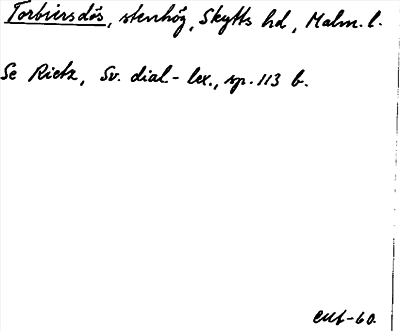 Torbiersdös, stenhög, Skytts hd, Malm. l.
Se Rietz, Sv. dial.-lex., sp. 113 b.
CMf-60.